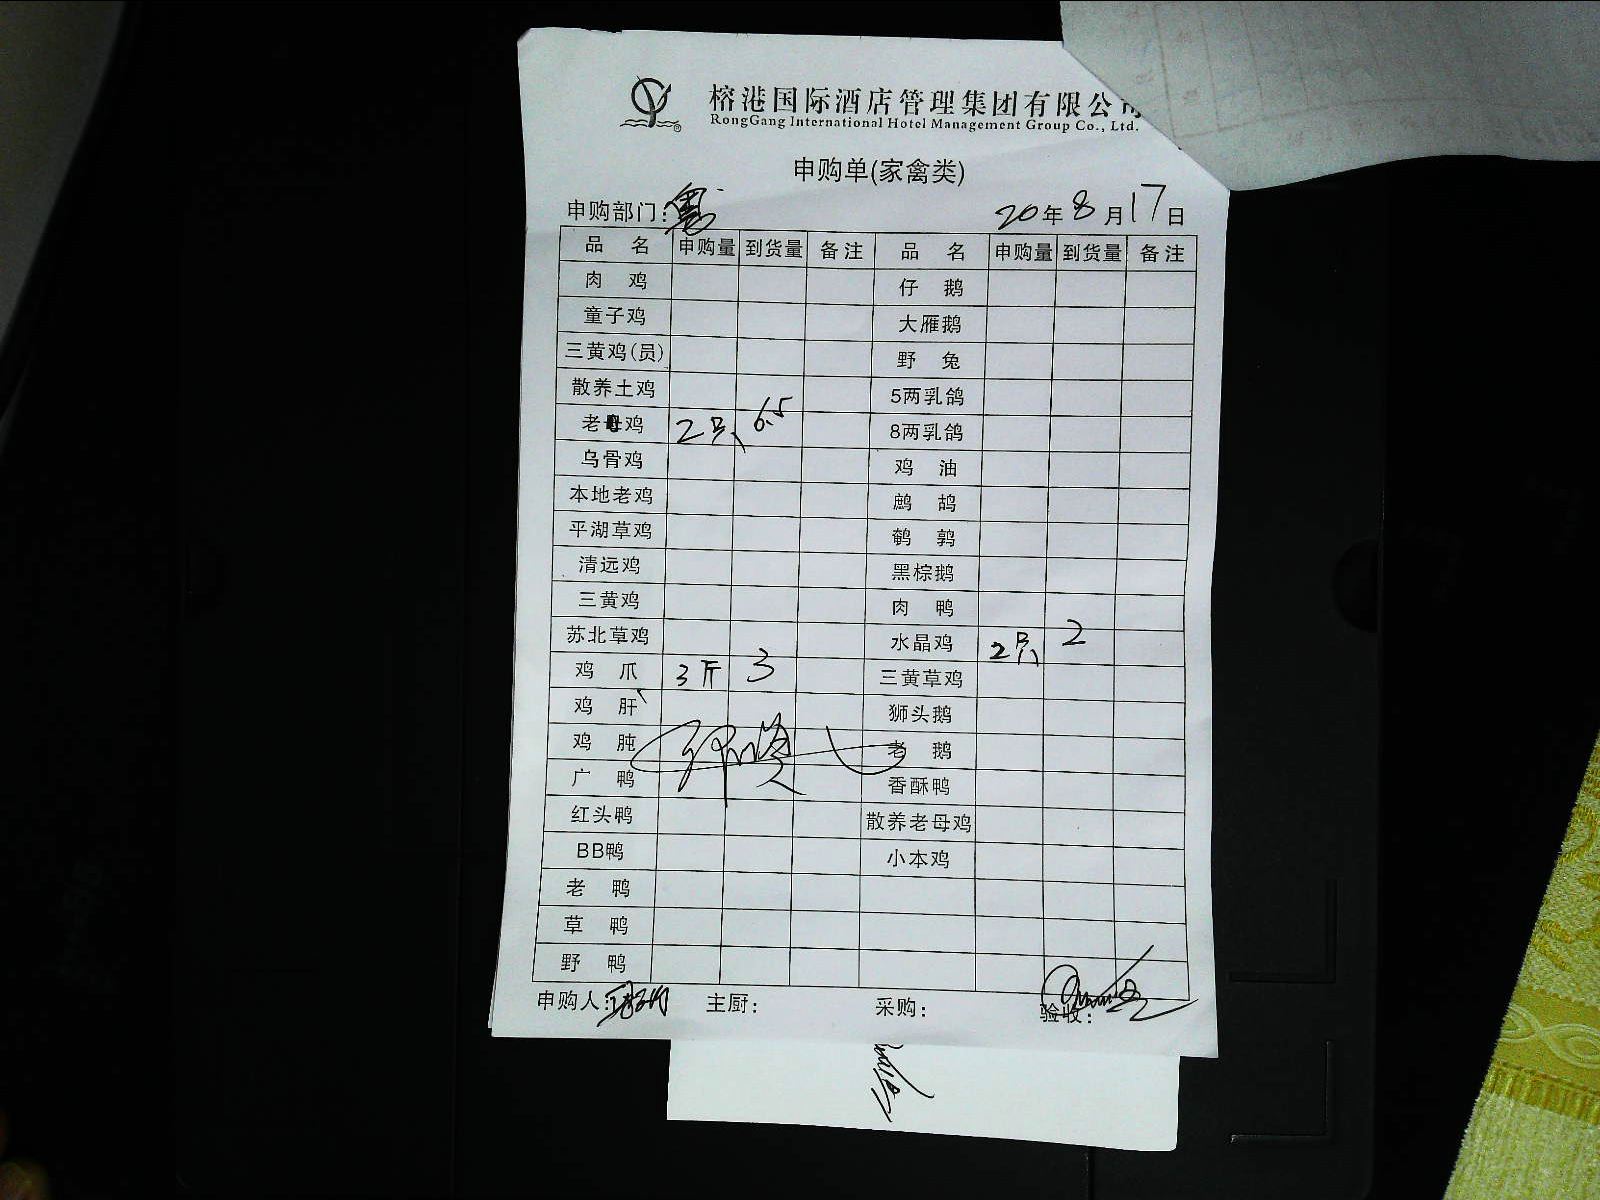 榕港国际酒店管理集团有限公司
RongGang International Hotel Management Group Co., Ltd.
申购单(家禽类)
申购部门: 20年8月17日
品名 申购量 到货量 备注 品名 申购量 到货量 备注
肉鸡 仔鹅
童子鸡 大雁鹅
三黄鸡(员) 野兔
散养土鸡 5两乳鸽
老母鸡 2只 6.5 8两乳鸽
乌骨鸡 鸡油
本地老鸡 鹧鸪
平湖草鸡 鹌鹑
清远鸡 黑棕鹅
三黄鸡 肉鸭
苏北草鸡 水晶鸡 2只 2
鸡爪 3斤 3 三黄草鸡
鸡肝 狮头鹅
鸡肫 老鹅
广鸭 香酥鸭
红头鸭 散养老母鸡
BB鸭 小本鸡
老鸭
草鸭
野鸭
申购人: 主厨: 采购: 验收: